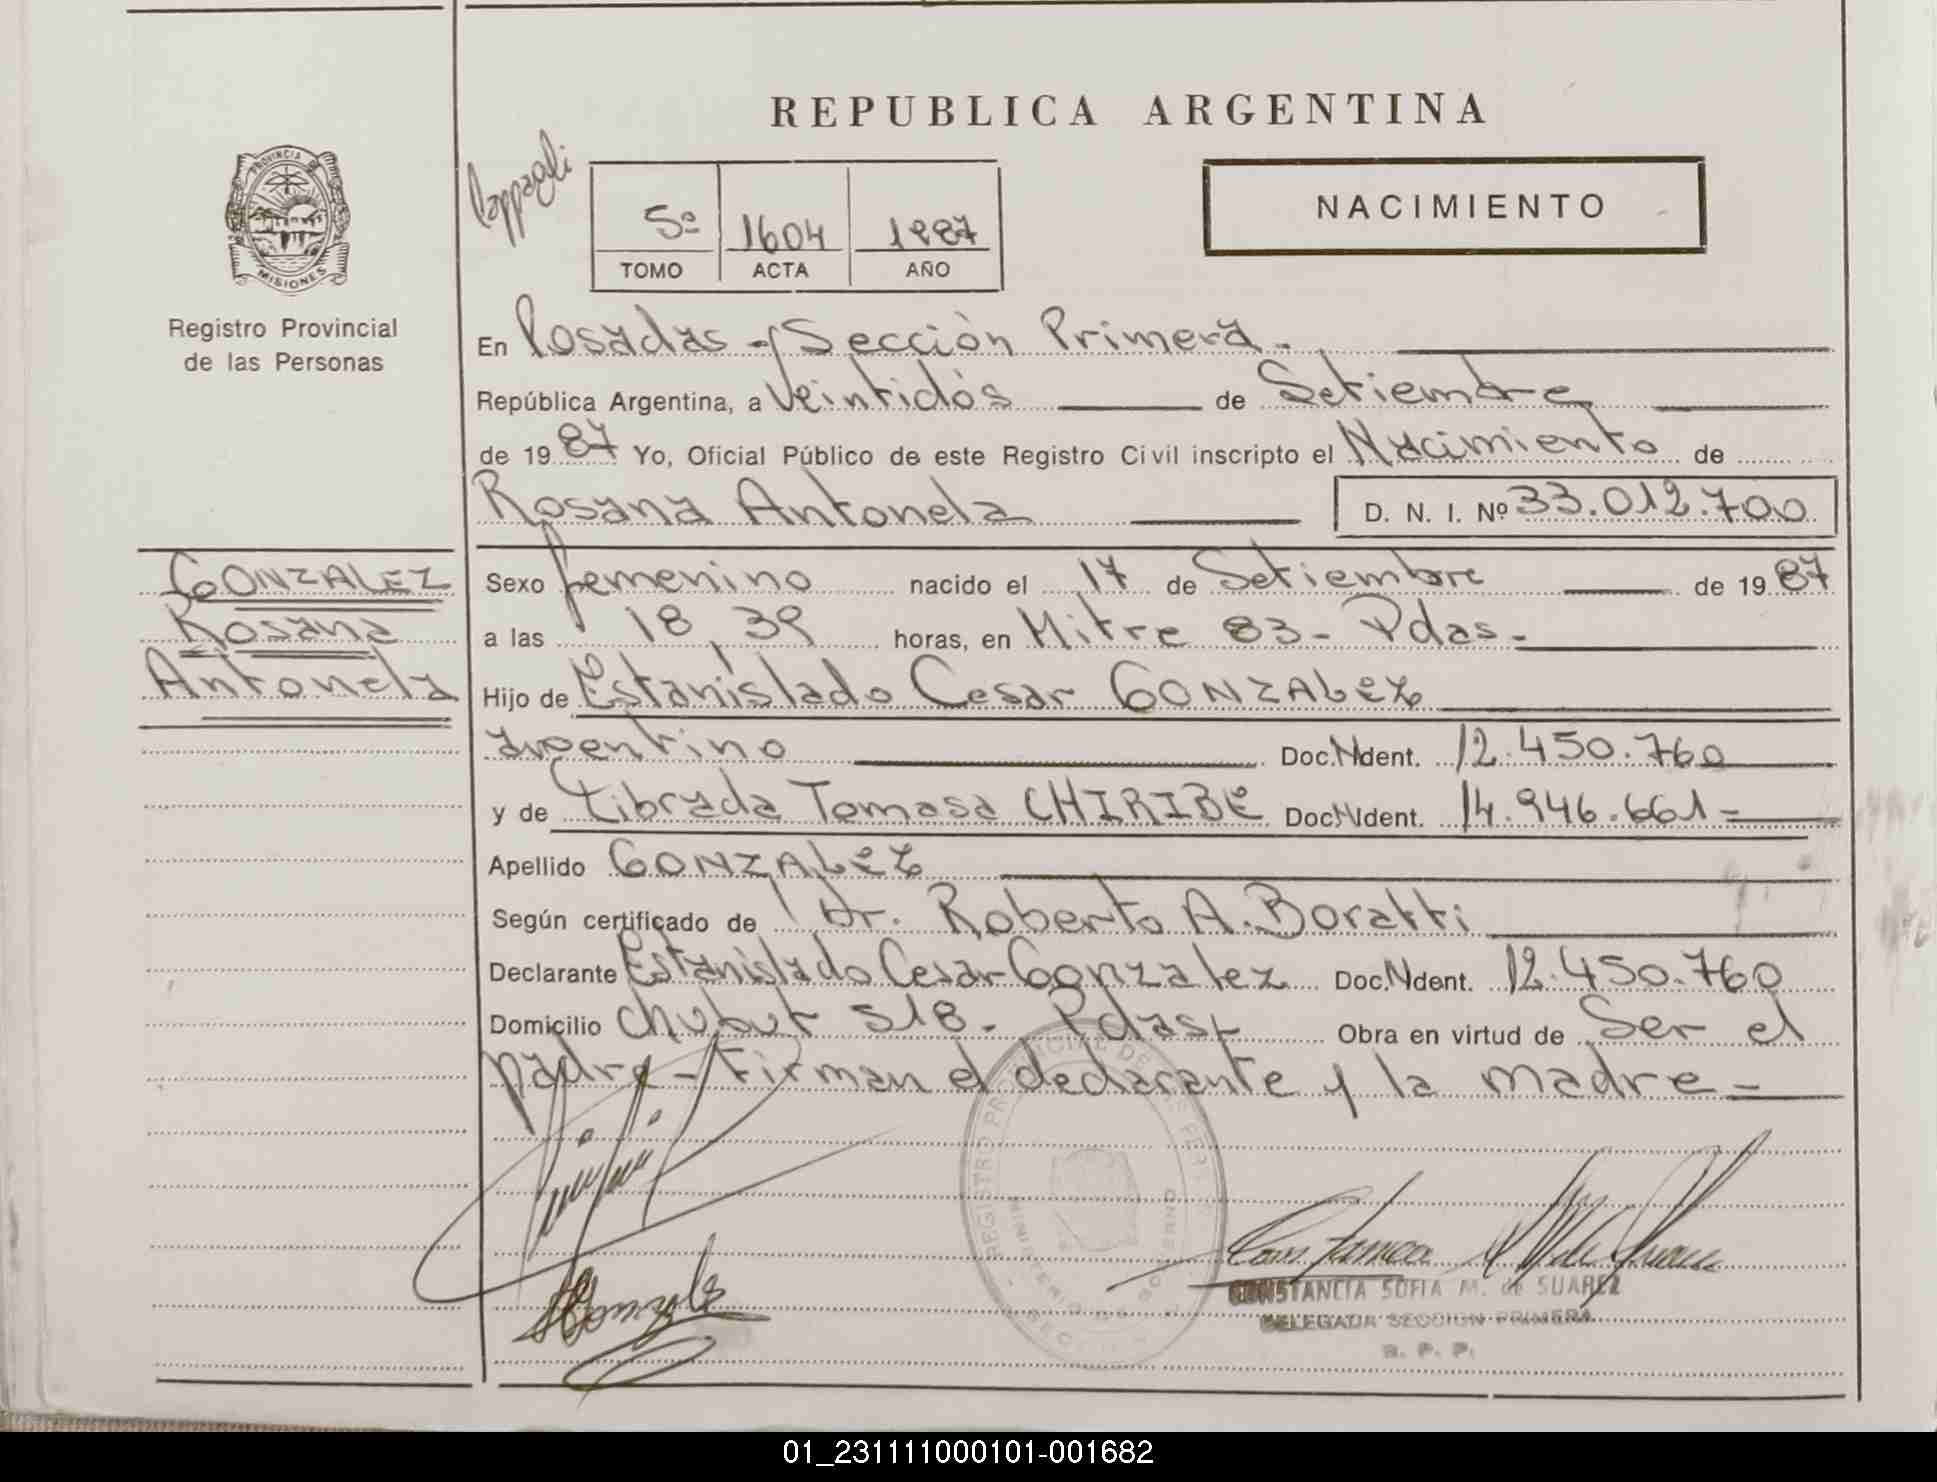 REPUBLICA ARGENTINA
PROVINCIA DE
MISIONES
Registro Provincial
de las Personas
Cappagli
5º 1604 1987
TOMO ACTA AÑO
NACIMIENTO
En Posadas - Sección Primera -
República Argentina, a Veintidós de Setiembre
de 1987 Yo, Oficial Público de este Registro Civil inscripto el Nacimiento de
Rosana Antonela D. N. I. Nº 33.012.700
GONZALEZ
Rosana
Antonela
Sexo femenino nacido el 17 de Setiembre de 1987
a las 18,39 horas, en Mitre 83 - Pdas -
Hijo de Estanislado Cesar GONZALEZ
argentino Doc.Ndent. 12.450.760
y de Librada Tomasa CHIRIBE Doc.Ndent. 14.946.661 =
Apellido GONZALEZ
Según certificado de Dr. Roberto A. Boratti
Declarante Estanislado Cesar Gonzalez Doc.Ndent. 12.450.760
Domicilio Chubut 518 - Pdas - Obra en virtud de Ser el
padre - Firman el declarante y la madre =
REGISTRO PROVINCIAL DE LAS PER
MINISTERIO DE GOBIERNO
CONSTANCIA SOFIA M. de SUAREZ
DELEGADA SECCION PRIMERA
R. P. P.
01_231111000101-001682